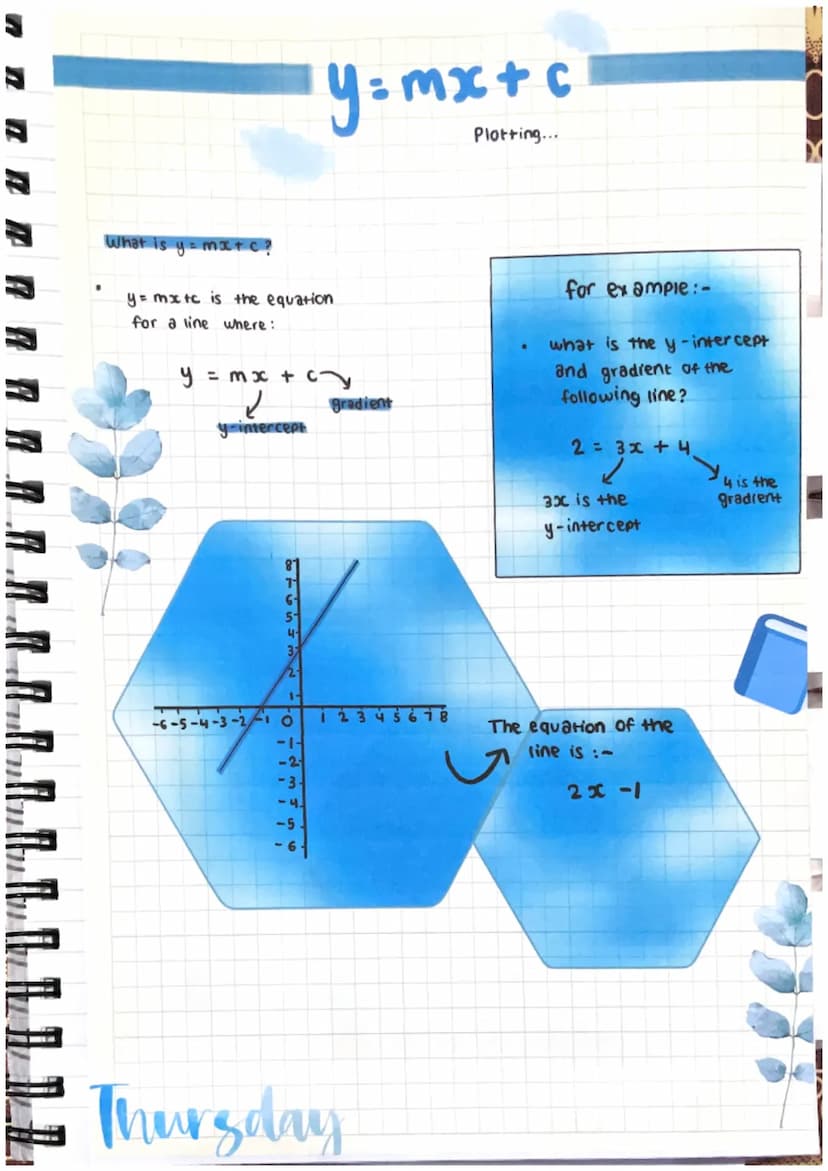 y = mx + c
Plotting...
What is y = mx + c?
• y = mx+c is the equation
for a line where:
y = mx + c
gradient
y-intercept
for example:-
• what is the y-intercept
and gradient of the
following line?
2 = 3x + 4
4 is the
gradient
3x is the
y-intercept
8
7
6
5
4
3
2
1
-6 -5 -4 -3 -2 -1 0 1 2 3 4 5 6 7 8
-1
-2
-3
-4
-5
-6
The equation of the
line is :-
2x -1
Thursday